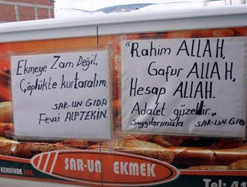 Ekmeye Zam Değil,
Çöplükte kurtaralım.
SAR-UN GIDA
Fevzi ALPTEKİN.
"Rahim ALLAH,
Gafur ALLAH,
Hesap ALLAH.
Adalet güzeldir."
Saygılarımızla SAR-UN GIDA
SAR-UN EKMEK
Tel: